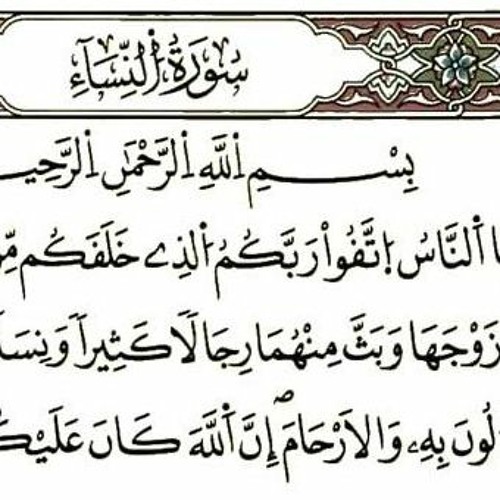 سُورَةُ اُ۬لنِّسَآءِ
بِسْمِ اِ۬للَّهِ اِ۬لرَّحْمَٰنِ اِ۬لرَّحِيـ
ا اَ۬لنَّاسُ اُ۪تَّقُواْ رَبَّكُمُ اُ۬لذِے خَلَقَكُم مِّن
زَوْجَهَا وَبَثَّ مِنْهُمَا رِجَالاٗ كَثِيراٗ وَنِسَا
لُونَ بِهِۦ وَالَارْحَامَۖ إِنَّ اَ۬للَّهَ كَانَ عَلَيْكُ